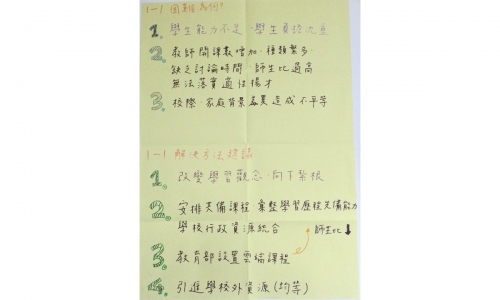 1-1 困難為何?
1. 學生能力不足、學生負擔沈重
2. 教師開課數增加、種類繁多、
缺乏討論時間、師生比過高
無法落實適性揚才
3. 校際、家庭背景差異造成不平等
1-1 解決方法建議
1. 改變學習觀念、向下紮根
2. 安排先備課程 彙整學習歷程先備能力
學校行政資源統合 師生比↓
3. 教育部設置雲端課程
4. 引進學校外資源(均等)